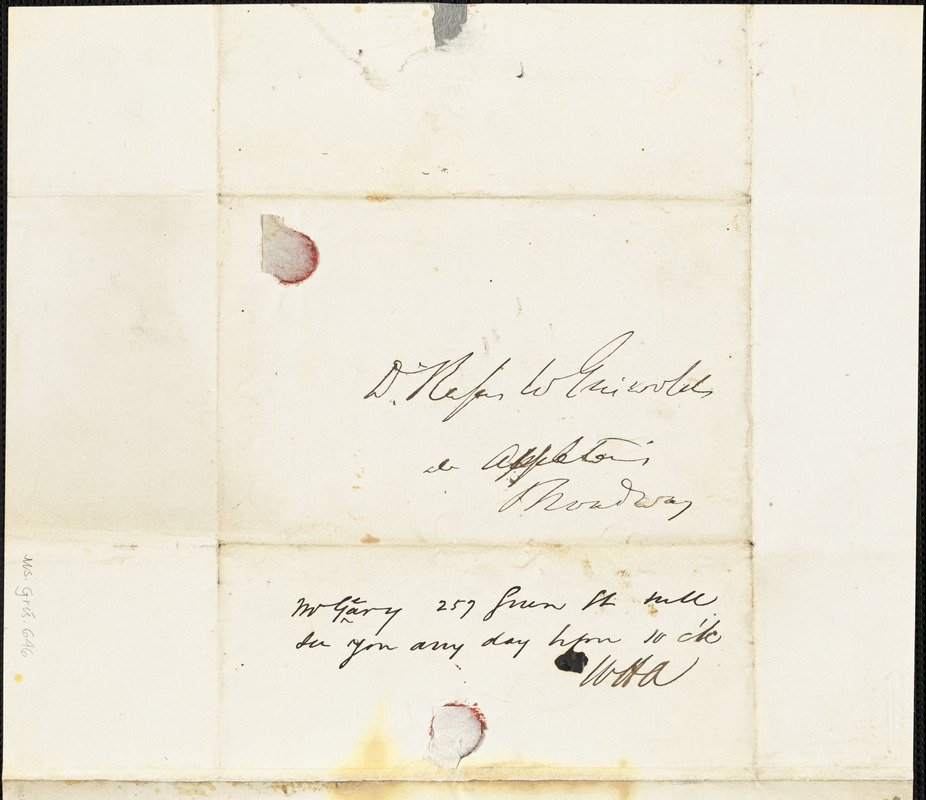 Dr. Rufus W Griswold
Appleton's
Broadway
Mr Gary 257 Green St will
see you any day before 10 o'clk
WHA
Ms. Gris. 646